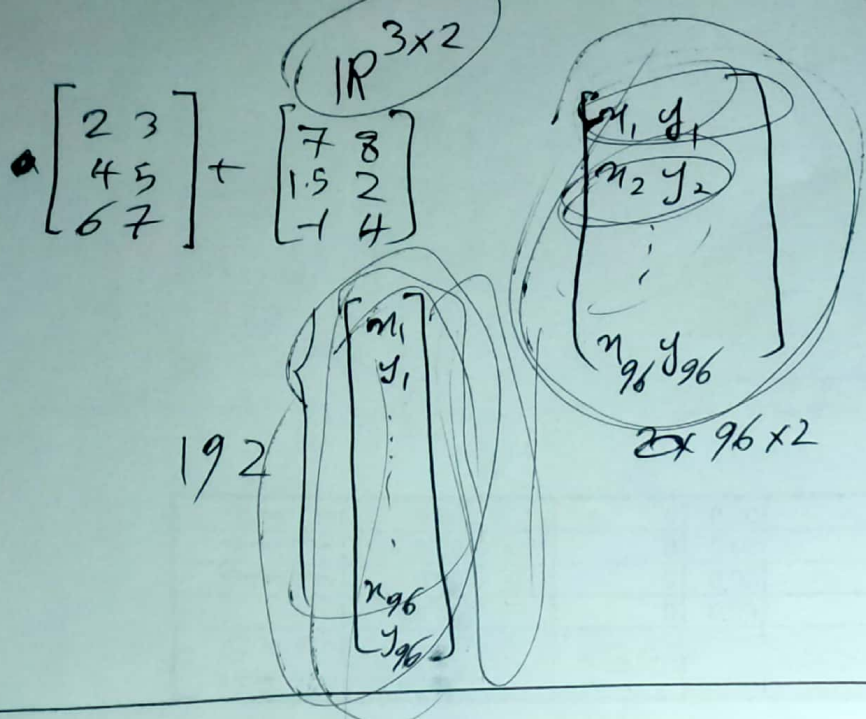 ℝ^{3×2}
[2 3
4 5
6 7] + [7 8
1.5 2
-1 4]
[x₁ y₁
x₂ y₂
⋮
x₉₆ y₉₆]
96×2
192 { [x₁
y₁
⋮
x₉₆
y₉₆]